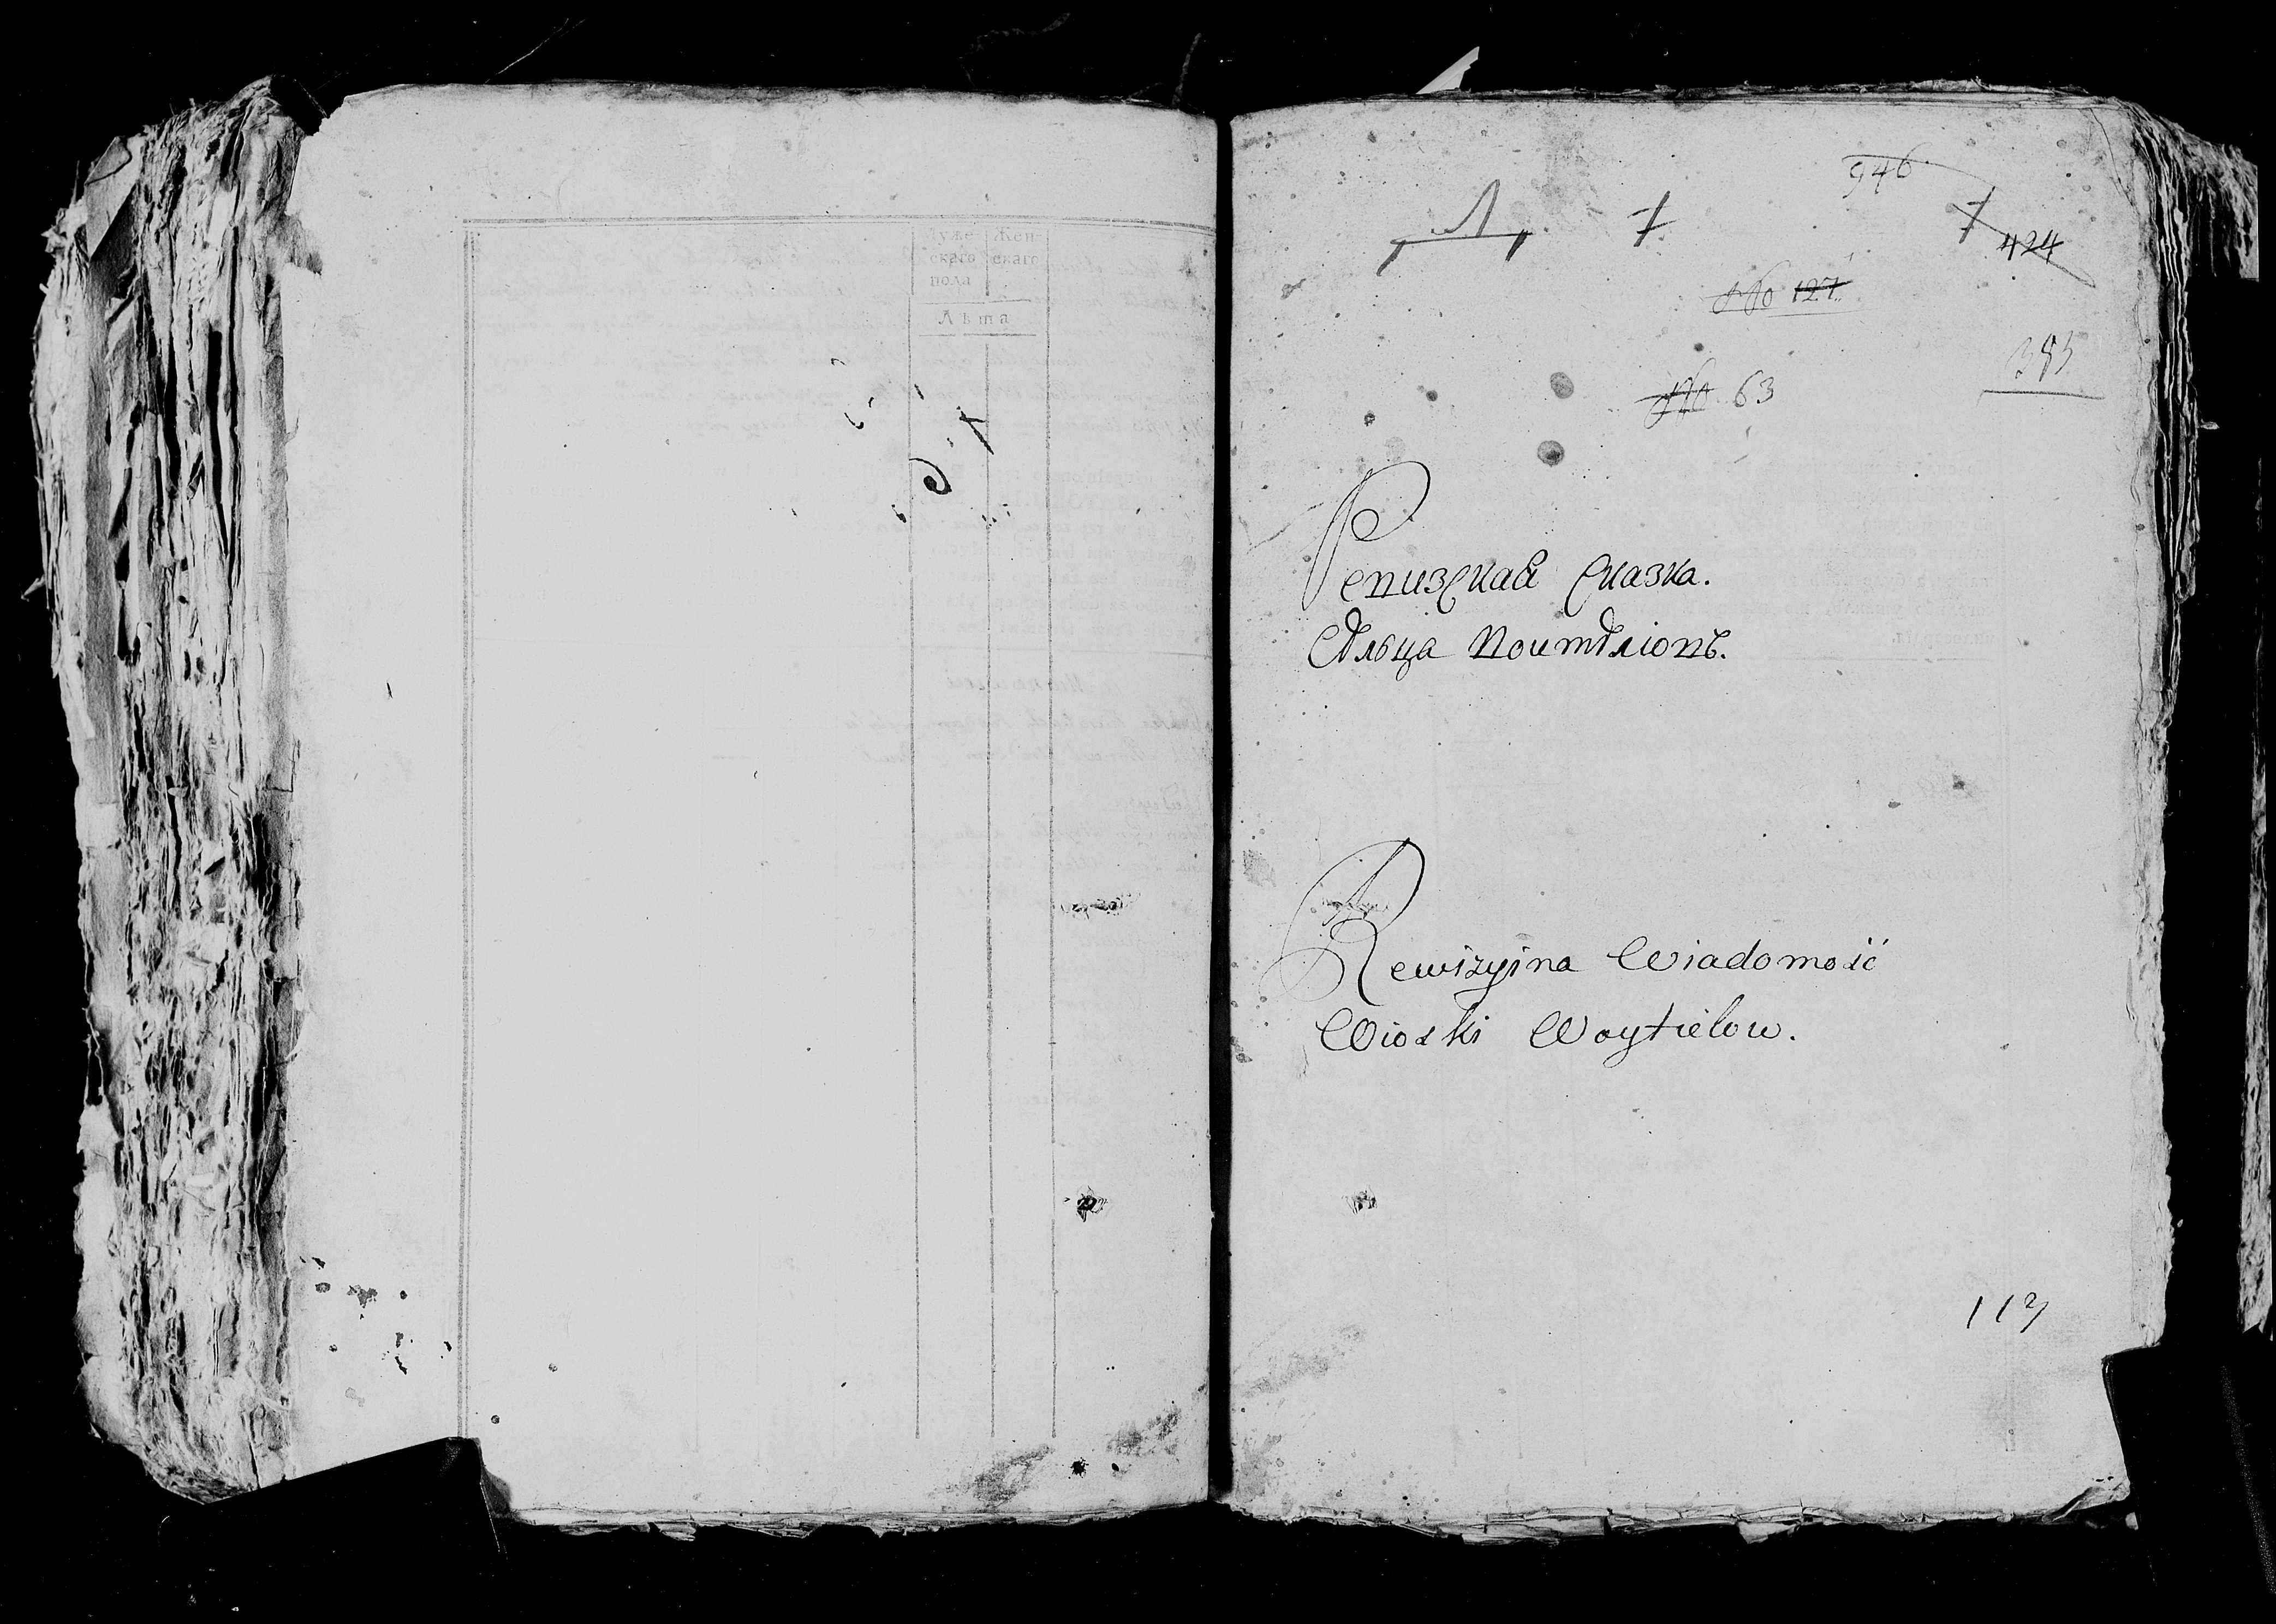 Муже-
скаго
пола
Жен-
скаго
Лѣта
946
Л 7 7
424
No 127
385
No 63
Ревизская Сказка.
Сѣльца Воитѣловъ.
Rewizyina Wiadomość
Wioski Woytielow.
113